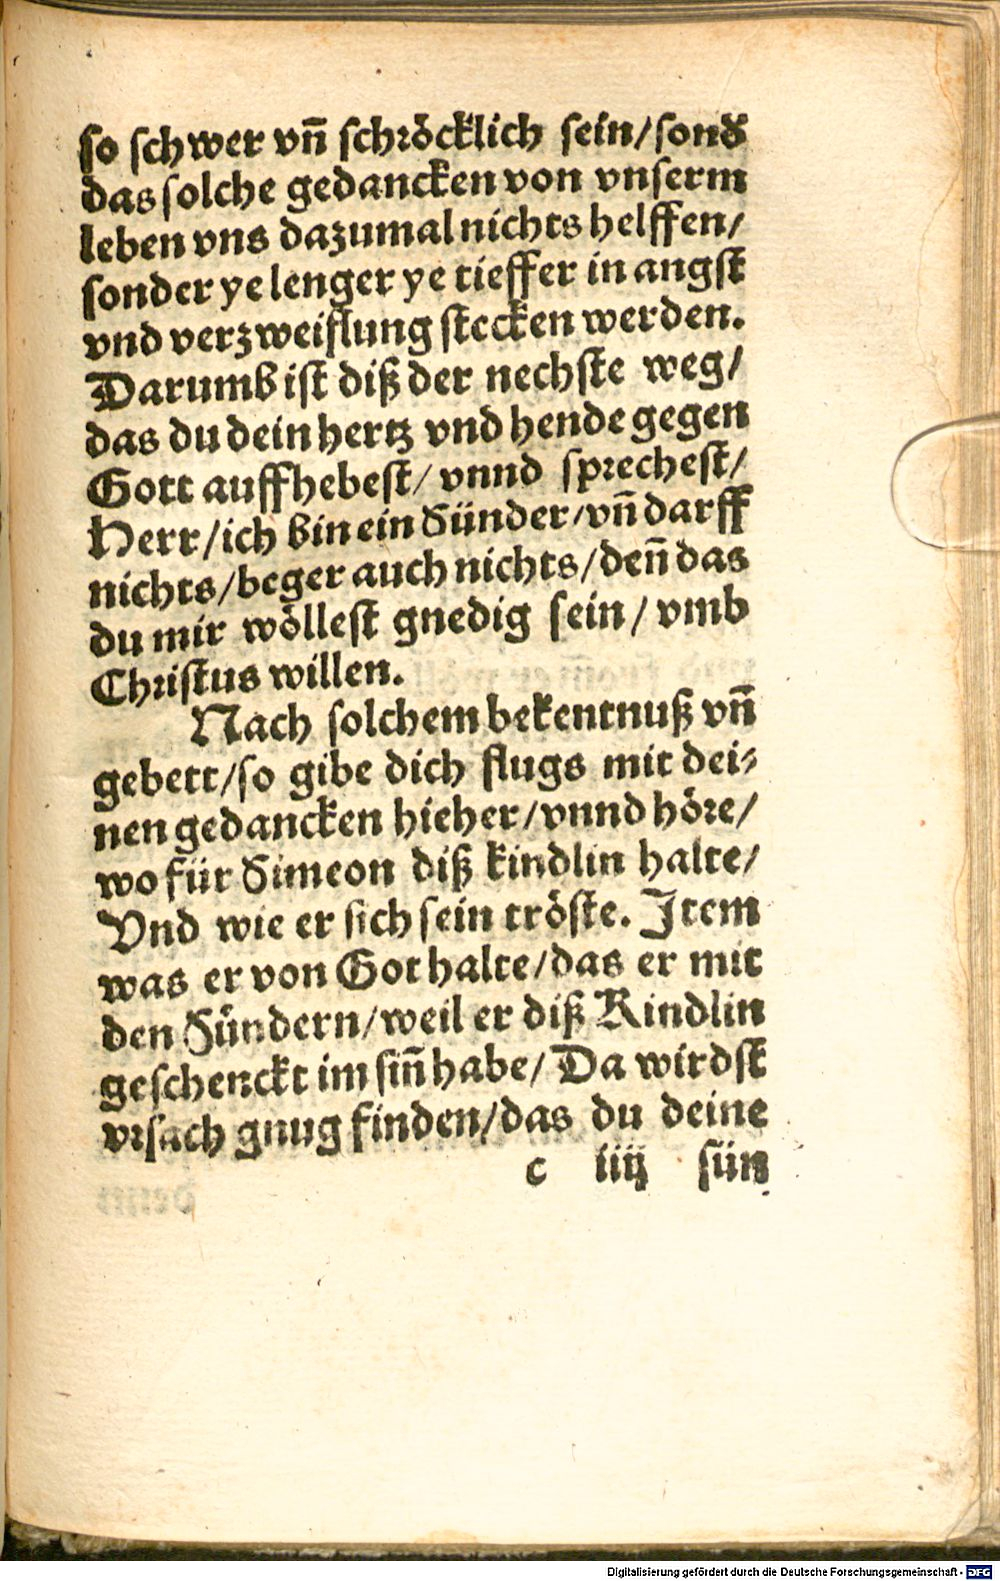 so schwer vn̄ schröcklich sein/sond
das solche gedancken von vnserm
leben vns dazumal nichts helffen/
sonder ye lenger ye tieffer in angst
vnd verzweiflung stecken werden.
Darumb ist diß der nechste weg/
das du dein hertz vnd hende gegen
Gott auffhebest/ vnnd sprechest/
Herr/ich bin ein Sünder/vn̄ darff
nichts/beger auch nichts/den̄ das
du mir wöllest gnedig sein/ vmb
Christus willen.
Nach solchem bekentnuß vn̄
gebett/so gibe dich flugs mit dei-
nen gedancken hieher/vnnd höre/
wo für Simeon diß kindlin halte/
Vnd wie er sich sein tröste. Item
was er von Got halte/das er mit
den Sündern/weil er diß Kindlin
geschenckt im sin̄ habe/ Da wirdst
vrsach gnug finden/das du deine
c iiij sün
Digitalisierung gefördert durch die Deutsche Forschungsgemeinschaft - DFG